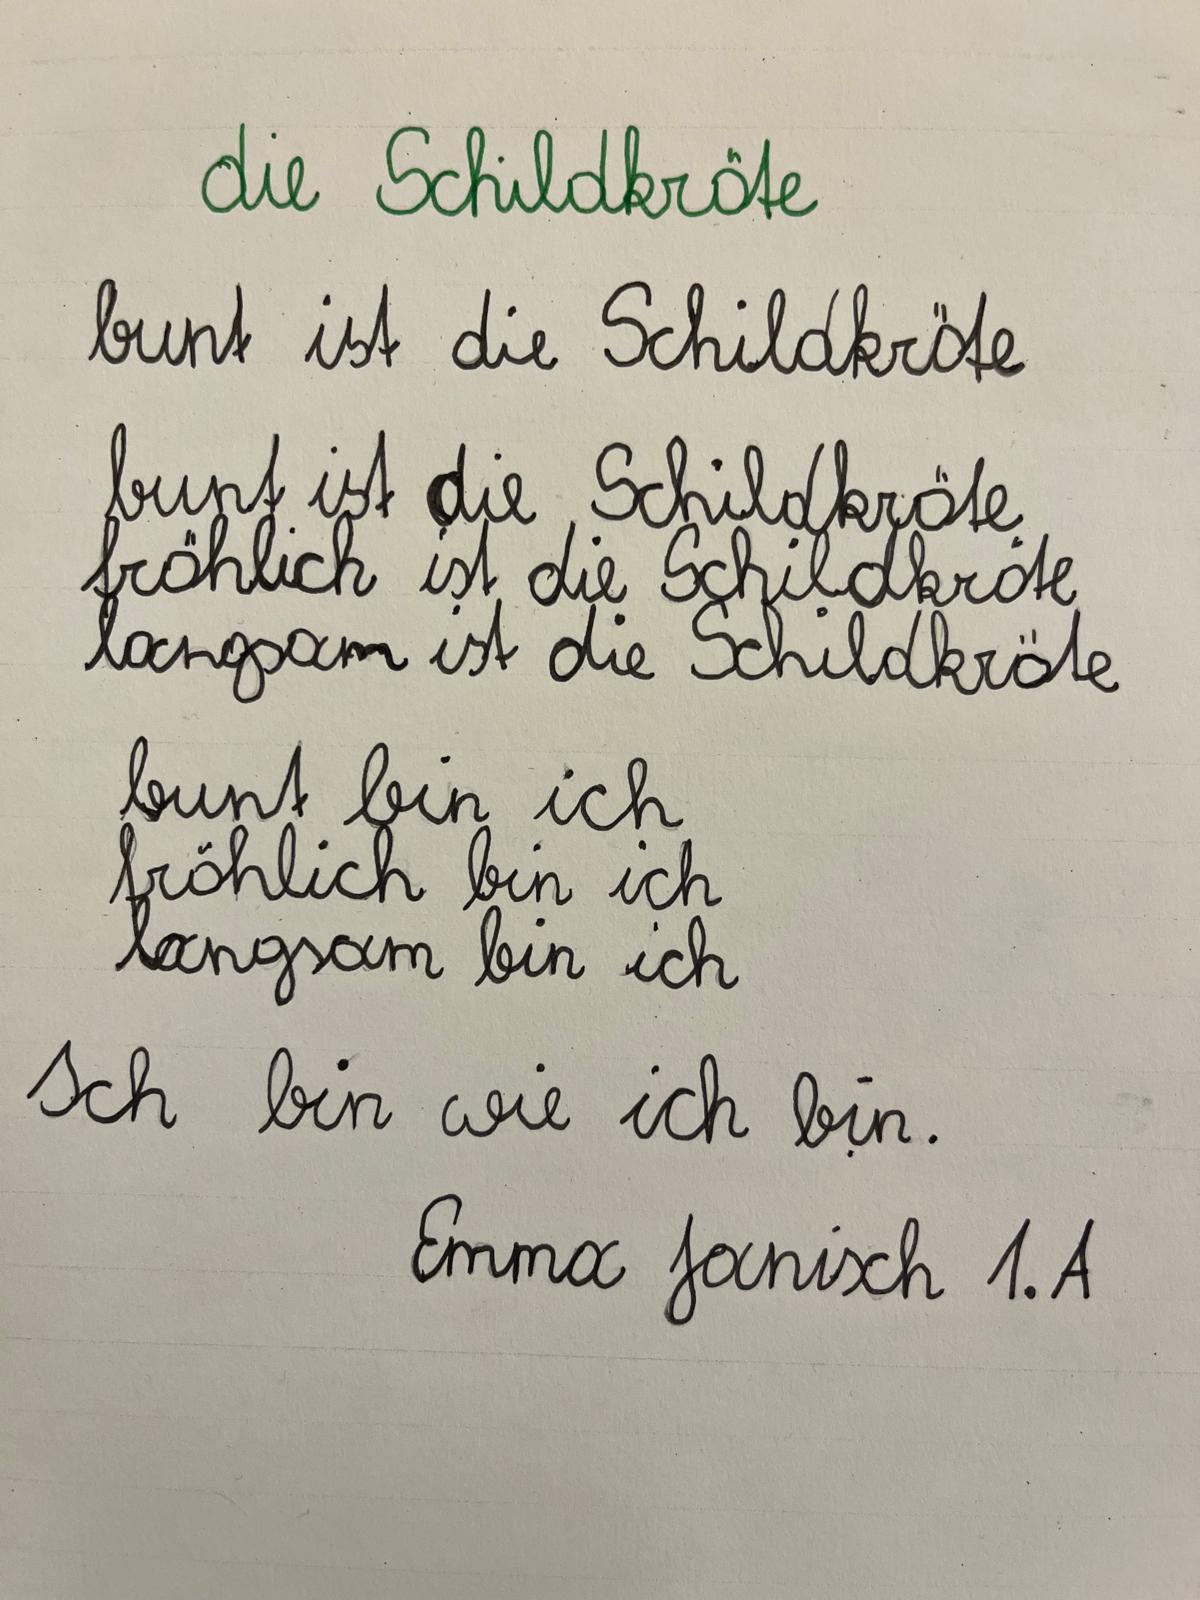 die Schildkröte
bunt ist die Schildkröte
bunt ist die Schildkröte
fröhlich ist die Schildkröte
langsam ist die Schildkröte
bunt bin ich
fröhlich bin ich
langsam bin ich
Ich bin wie ich bin.
Emma Janisch 1.A